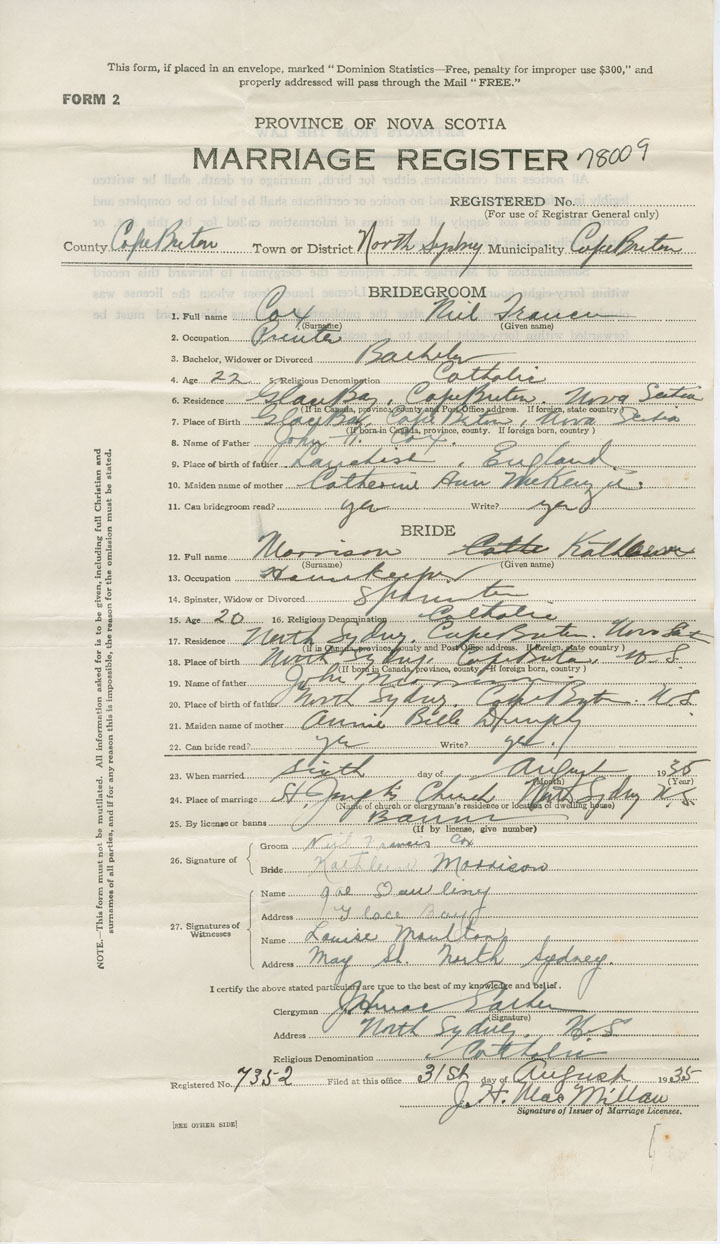 This form, if placed in an envelope, marked " Dominion Statistics—Free, penalty for improper use $300," and
properly addressed will pass through the Mail "FREE."
FORM 2
PROVINCE OF NOVA SCOTIA
MARRIAGE REGISTER 78009
REGISTERED No.
(For use of Registrar General only)
County Cape Breton Town or District North Sydney Municipality Cape Breton
BRIDEGROOM
1. Full name Cox Neil Francis
(Surname) (Given name)
2. Occupation Printer
3. Bachelor, Widower or Divorced Bachelor
4. Age 22 5. Religious Denomination Catholic
6. Residence Glace Bay, Cape Breton, Nova Scotia
(If in Canada, province, county and Post Office address. If foreign, state country)
7. Place of Birth Glace Bay, Cape Breton, Nova Scotia
(If born in Canada, province, county. If foreign born, country)
8. Name of Father John H. Cox.
9. Place of birth of father , England
10. Maiden name of mother Catherine Ann McKenzie
11. Can bridegroom read? yes Write? yes
BRIDE
12. Full name Morrison Cath Kathleen
(Surname) (Given name)
13. Occupation Housekeeper
14. Spinster, Widow or Divorced Spinster
15. Age 20 16. Religious Denomination Catholic
17. Residence North Sydney, Cape Breton. Nova Scotia
(If in Canada, province, county and Post Office address. If foreign, state country)
18. Place of birth North Sydney, Cape Breton, N.S.
(If born in Canada, province, county, If foreign born, country)
19. Name of father John Morrison
20. Place of birth of father North Sydney, Cape Breton N.S.
21. Maiden name of mother Annie Belle
22. Can bride read? yes Write? yes.
23. When married sixth day of August 1935
(Month) (Year)
24. Place of marriage St. Joseph's Church North Sydney N.S.
(Name of church or clergyman's residence or location of dwelling house)
25. By license or banns Banns
(If by license, give number)
26. Signature of
Groom Neil Francis Cox
Bride Kathleen Morrison
27. Signatures of Witnesses
Name Joe Dowling
Address Glace Bay
Name Louise Moulton
Address May St. North Sydney.
I certify the above stated particulars are true to the best of my knowledge and belief.
Clergyman
(Signature)
Address North Sydney, N.S
Religious Denomination Catholic
Registered No. 7352 Filed at this office 31st day of August 1935
J. H. MacMillan
Signature of Issuer of Marriage Licenses.
[SEE OTHER SIDE]
NOTE.—This form must not be mutilated. All information asked for is to be given, including full Christian and
surnames of all parties, and if for any reason this is impossible, the reason for the omission must be stated.